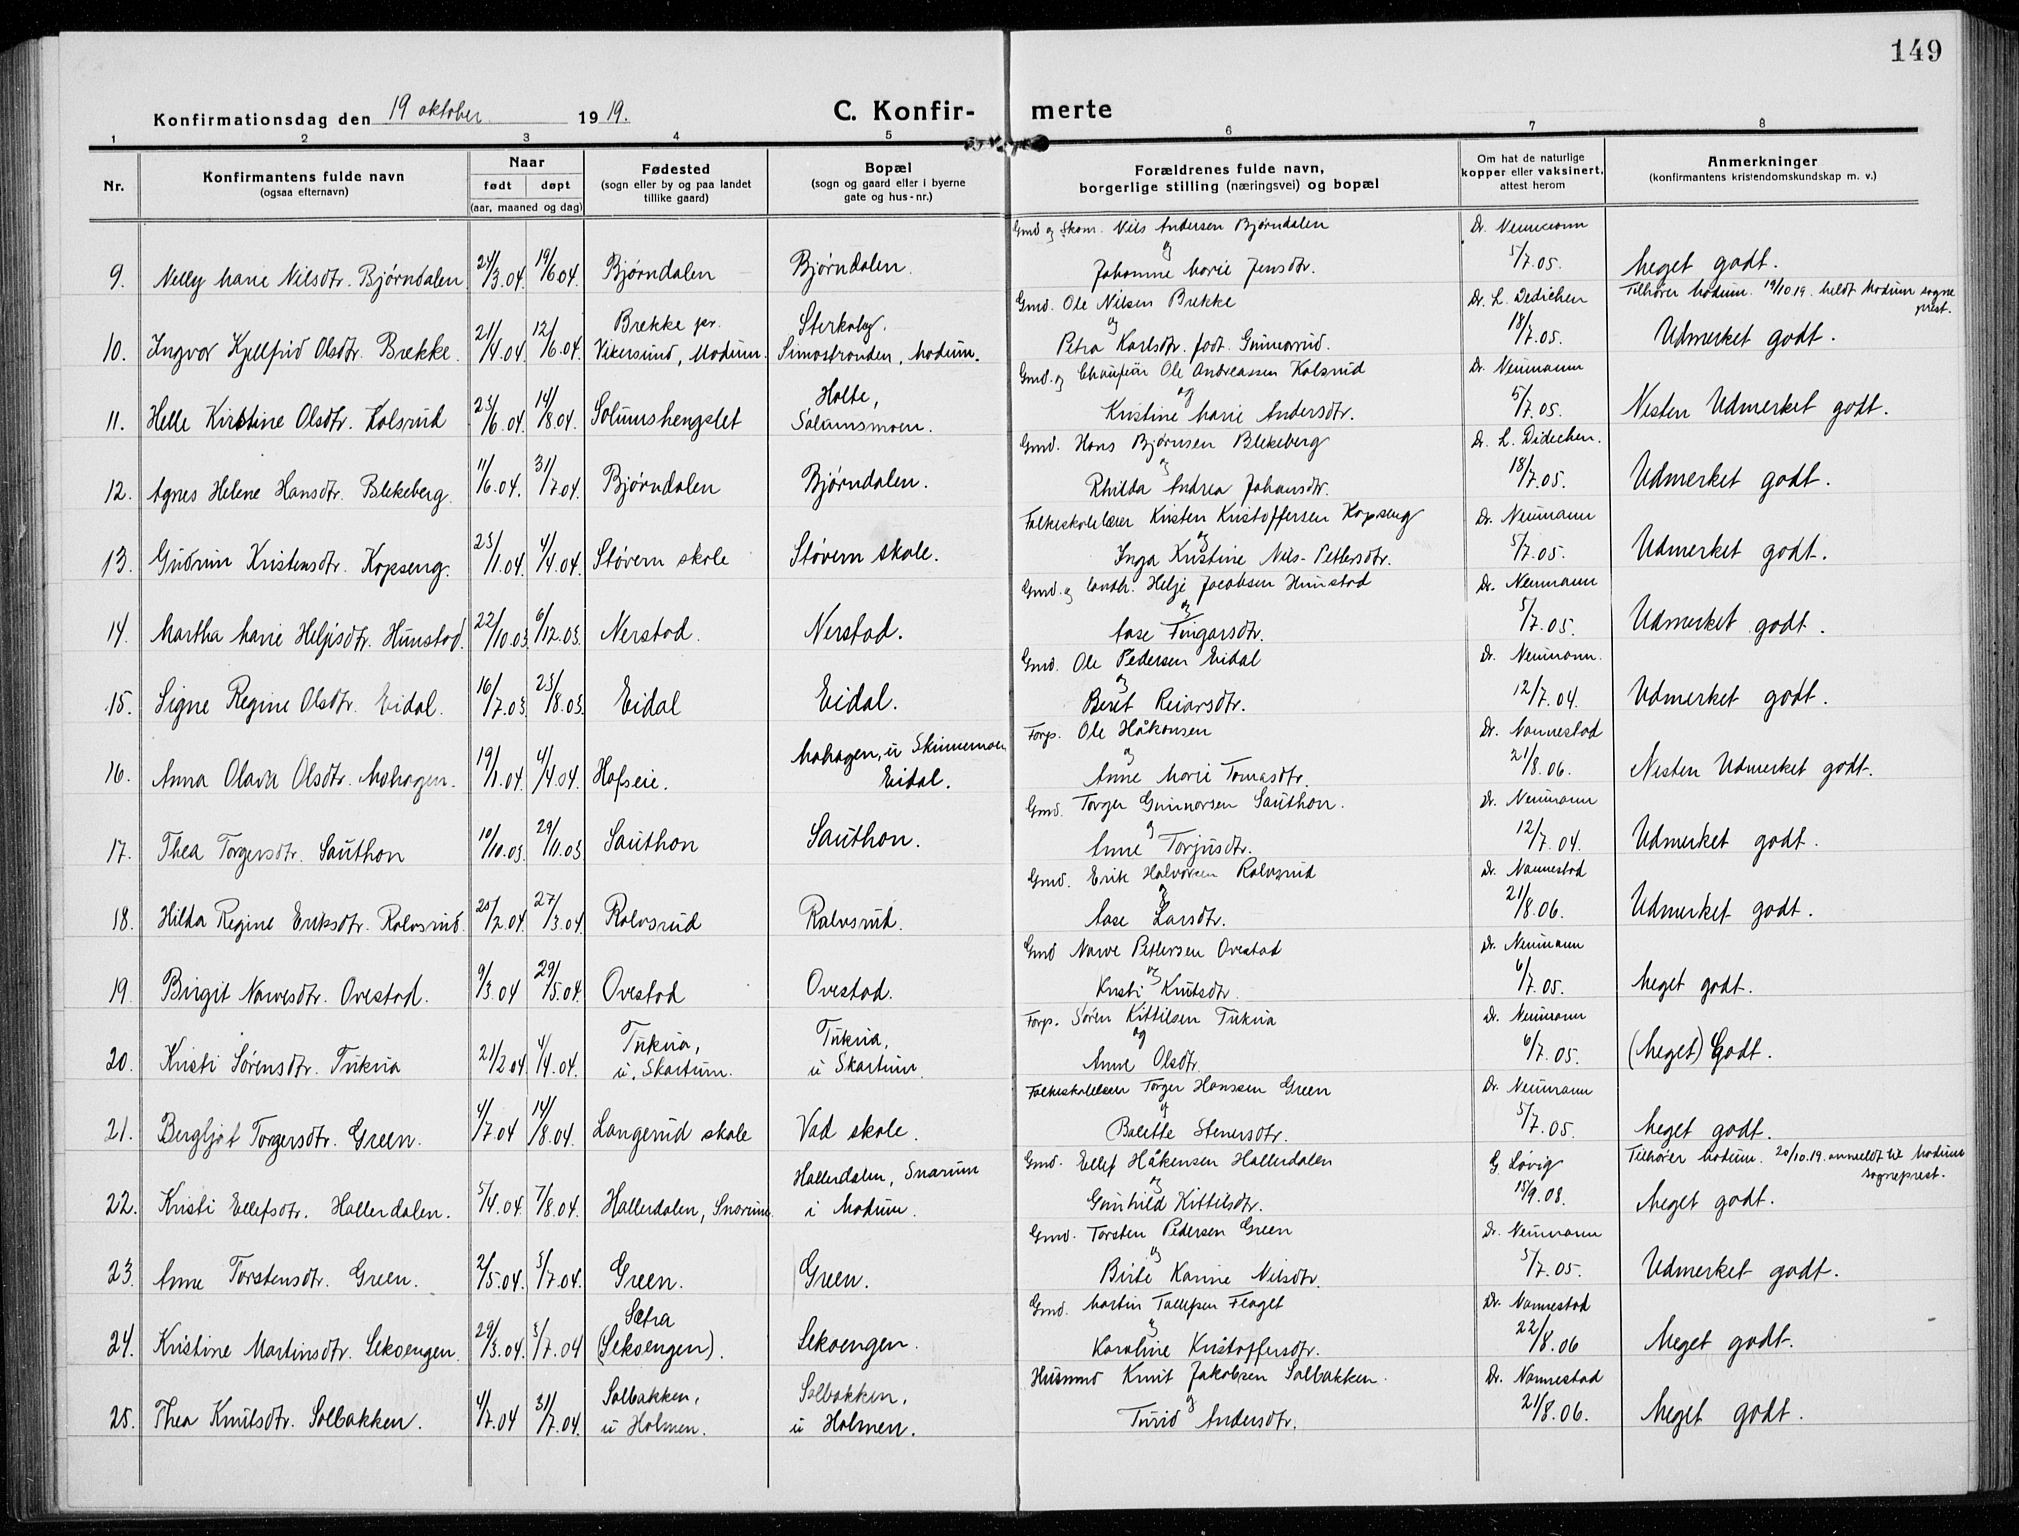 149
Konfirmationsdag den 19 oktober 1919. C. Konfir- merte
1 2 3 4 5 6 7 8
Nr. Konfirmantens fulde navn (ogsaa efternavn) Naar født døpt (aar, maaned og dag) Fødested (sogn eller by og paa landet tillike gaard) Bopæl (sogn og gaard eller i byerne gate og hus-nr.) Forældrenes fulde navn, borgerlige stilling (næringsvei) og bopæl Om hat de naturlige kopper eller vaksinert, attest herom Anmerkninger (konfirmantens kristendomskundskap m. v.)
Gmd og Skom. Nils Andersen Bjørndalen Dr. Neumann
9. Nelly Marie Nilsdtr. Bjørndalen 24/3.04. 19/6.04. Bjørndalen Bjørndalen. og Johanne Marie Jensdtr. 5/7.05. Meget godt.
Gmd. Ole Nilsen Brekke Dr. L. Dedichen Tilhører Modum. 19/10.19. meldt Modum sogneprest.
10. Ingvor Kjellfrid Olsdtr. Brekke. 21/4.04. 12/6.04. Brekke pr. Vikersund, Modum. Sterkoby. Simostranden, Modum. og Petra Karlsdtr. født Gunnerud. 18/7.05. Udmerket godt.
Gmd. og Chauffør Ole Andreassen Kolsrud Dr. Neumann
11. Helle Kirstine Olsdtr. Kolsrud 23/6.04. 14/8.04. Solumshengslet Holte, Solumsmoen. og Kristine Marie Andersdtr. 5/7.05. Nesten Udmerket godt.
Gmd. Hans Bjørnsen Blekeberg Dr. L. Didichen.
12. Agnes Helene Hansdtr. Blekeberg. 11/6.04. 31/7.04. Bjørndalen Bjørndalen. og Rhilda Andrea Johansdtr. 18/7.05. Udmerket godt.
Folkeskolelærer Kristen Kristoffersen Kopseng Dr. Neumann
13. Gudrun Kristensdtr. Kopseng. 23/1.04. 4/4.04. Støvern skole Støvern skole. og Inga Kristine Nils-Pettersdtr. 5/7.05. Udmerket godt.
Gmd. og landh. Helje Jacobsen Hunstad Dr. Neumann
14. Martha Marie Heljesdtr. Hunstad. 22/10.03. 6/12.03. Nerstad. Nerstad. og Aase Fingarsdtr. 5/7.05. Udmerket godt.
Gmd. Ole Pedersen Eidal Dr. Neumann.
15. Signe Regine Olsdtr. Eidal. 16/7.03. 23/8.03. Eidal Eidal. og Beret Reiarsdtr. 12/7.04. Udmerket godt.
Forp. Ole Håkonsen Dr. Nannestad
16. Anna Olava Olsdtr. Mohagen. 19/1.04. 4/4.04. Hofseie. Mohagen, u Skinnemoen Eidal. og Anne Marie Tomasdtr. 21/8.06. Nesten Udmerket godt.
Gmd. Torger Gunnarsen Sauthon. Dr. Neumann
17. Thea Torgersdtr. Sauthon 10/10.03 29/11.03 Sauthon Sauthon. og Anne Torjusdtr. 12/7.04. Udmerket godt.
Gmd. Erik Halvorsen Ralvsrud Dr. Nannestad
18. Hilda Regine Eriksdtr. Ralvsrud. 25/2.04 27/3.04. Ralvsrud Ralvsrud. og Aase Larsdtr. 21/8.06. Udmerket godt.
Gmd Narve Pettersen Ovestad Dr. Neumann
19. Birgit Narvesdtr. Ovestad. 9/3.04 29/5.04. Ovestad Ovestad. og Kristi Knutsdtr. 6/7.05. Meget godt.
Forp. Søren Kittilsen Tukua Dr. Neumann
20. Kristi Sørensdtr. Tukua 21/2.04 4/4.04. Tukua, u. Skartum. Tukua, u Skartum. og Anne Olsdtr. 6/7.05. (Meget) Godt.
Folkeskolelærer Torger Hanssen Green Dr. Neumann
21. Bergljot Torgersdtr. Green. 4/7.04 14/8.04. Langerud skole Vad skole. og Bolette Stenersdtr. 5/7.05. Meget godt.
Gmd. Ellef Håkensen Hallerdalen G Løvig Tilhører Modum. 20/10.19. anmeldt til Modum sogneprest.
22. Kristi Ellefsdtr. Hallerdalen. 5/4.04. 7/8.04. Hallerdalen, Snarum. Hallerdalen, Snarum i Modum. og Gunhild Kittilsdtr. 15/9.08. Meget godt.
Gmd. Torsten Pedersen Green Dr. Neumann
23. Anne Torstensdtr. Green. 2/5.04. 3/7.04. Green. Green. og Birte Karine Nilsdtr. 5/7.05. Udmerket godt.
Gmd. Martin Tollefsen Flaget Dr. Nannestad
24. Kristine Martinsdtr. Sekoengen. 29/3.04. 3/7.04 Sætra (Sekoengen). Sekoengen. og Karoline Kristoffersdtr. 22/8.06 Meget godt.
Husmd Knut Jakobsen Solbakken. Dr. Nannestad
25. Thea Knutsdtr. Solbakken. 4/7.04 31/7.04. Solbakken, u Holmen. Solbakken, u Holmen. og Turid Andersdtr. 21/8.06. Meget godt.